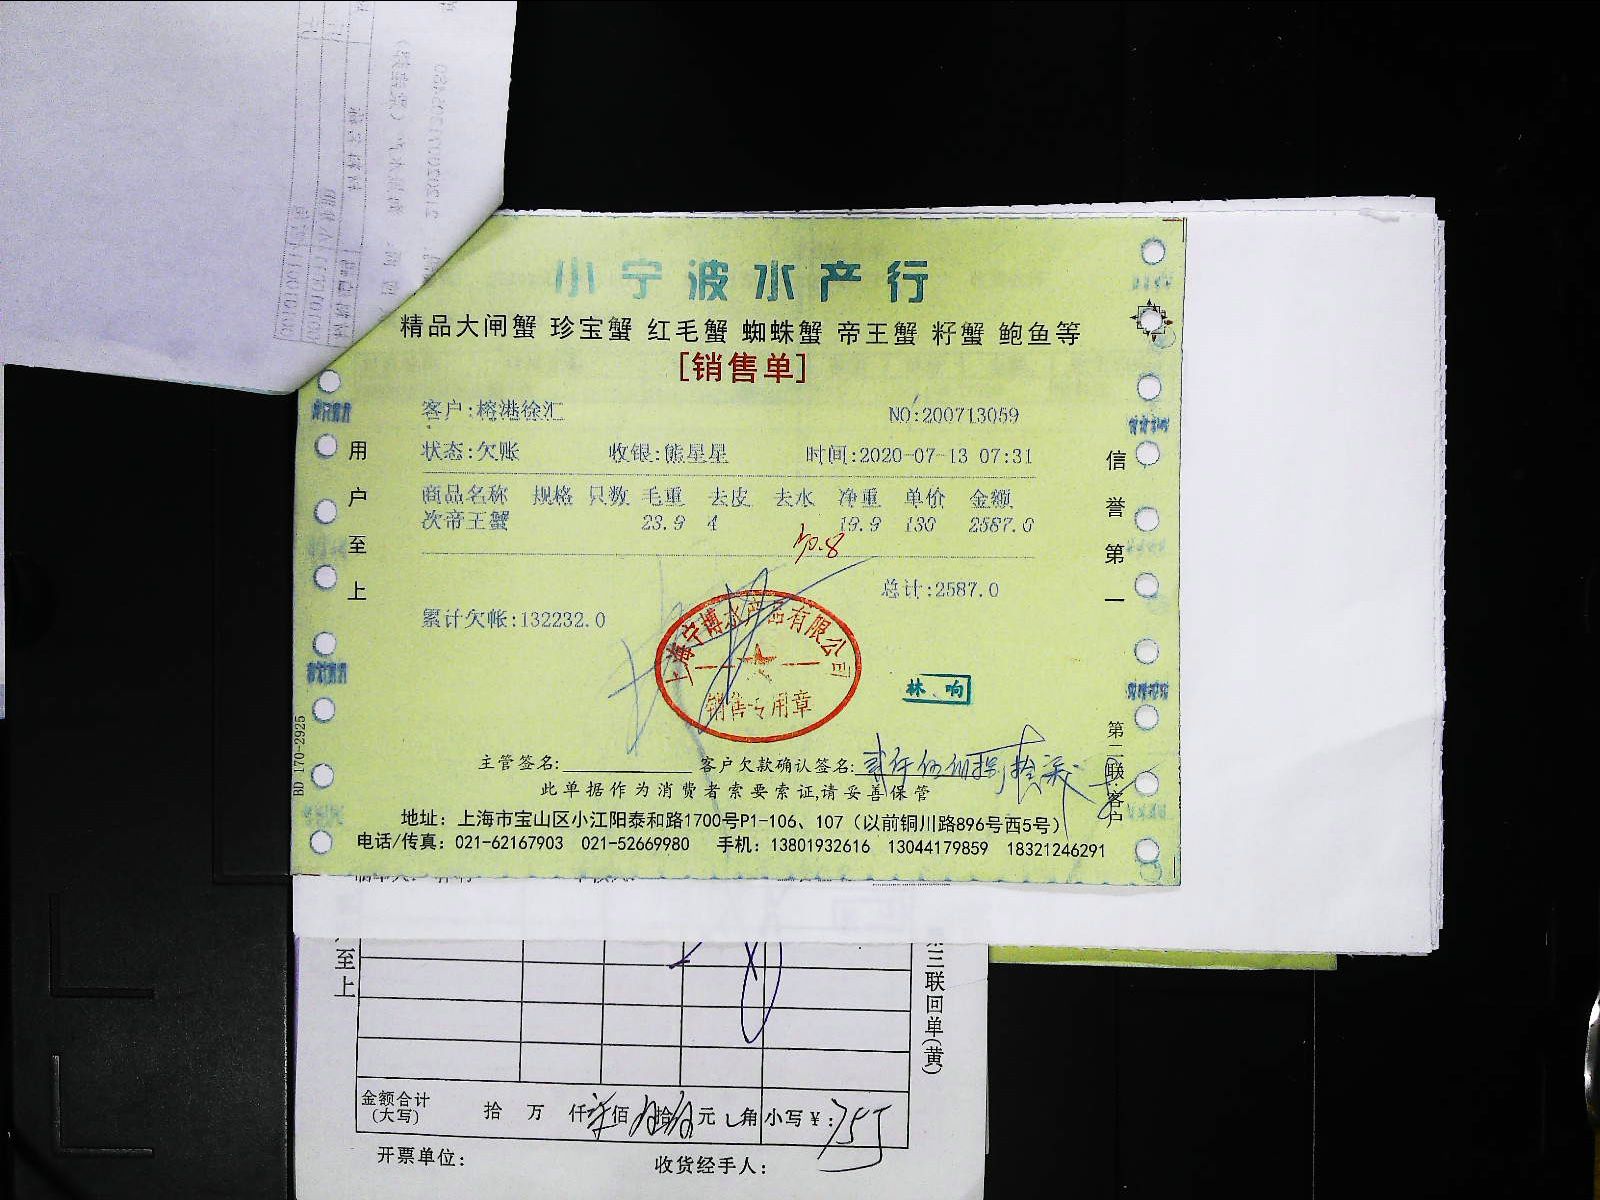 小宁波水产行
精品大闸蟹 珍宝蟹 红毛蟹 蜘蛛蟹 帝王蟹 籽蟹 鲍鱼等
[销售单]
客户:榕港徐汇 NO:200713059
状态:欠账 收银:熊星星 时间:2020-07-13 07:31
商品名称 规格 只数 毛重 去皮 去水 净重 单价 金额
次帝王蟹 23.9 4 19.9 130 2587.0
总计:2587.0
累计欠帐:132232.0
上海宁博水产品有限公司
销售专用章
林响
主管签名: 客户欠款确认签名:
此单据作为消费者索要索证,请妥善保管
地址：上海市宝山区小江阳泰和路1700号P1-106、107（以前铜川路896号西5号）
电话/传真：021-62167903 021-52669980 手机：13801932616 13044179859 18321246291
用户至上
信誉第一
第二联:客户
BD 170-2925
至上
三联回单(黄)
金额合计
(大写) 拾 万 仟 佰 拾 元 角 小写¥: 755
开票单位: 收货经手人: